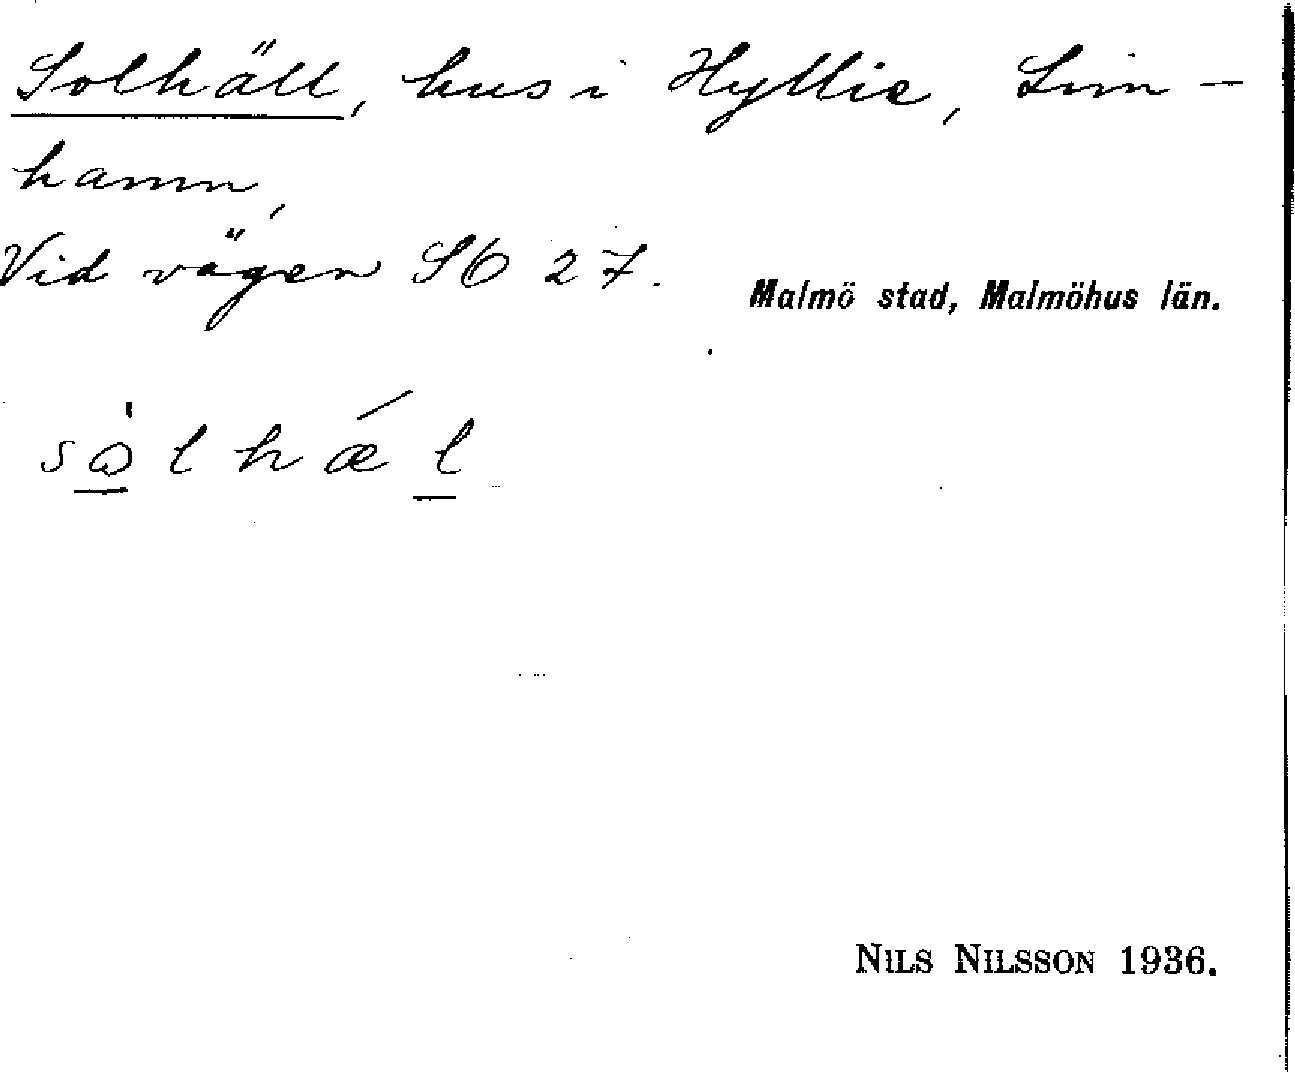 Solhäll, hus i Hyllie, Lim-
hamn,
Vid vägen S6 27.
Malmö stad, Malmöhus län.
NILS NILSSON 1936.